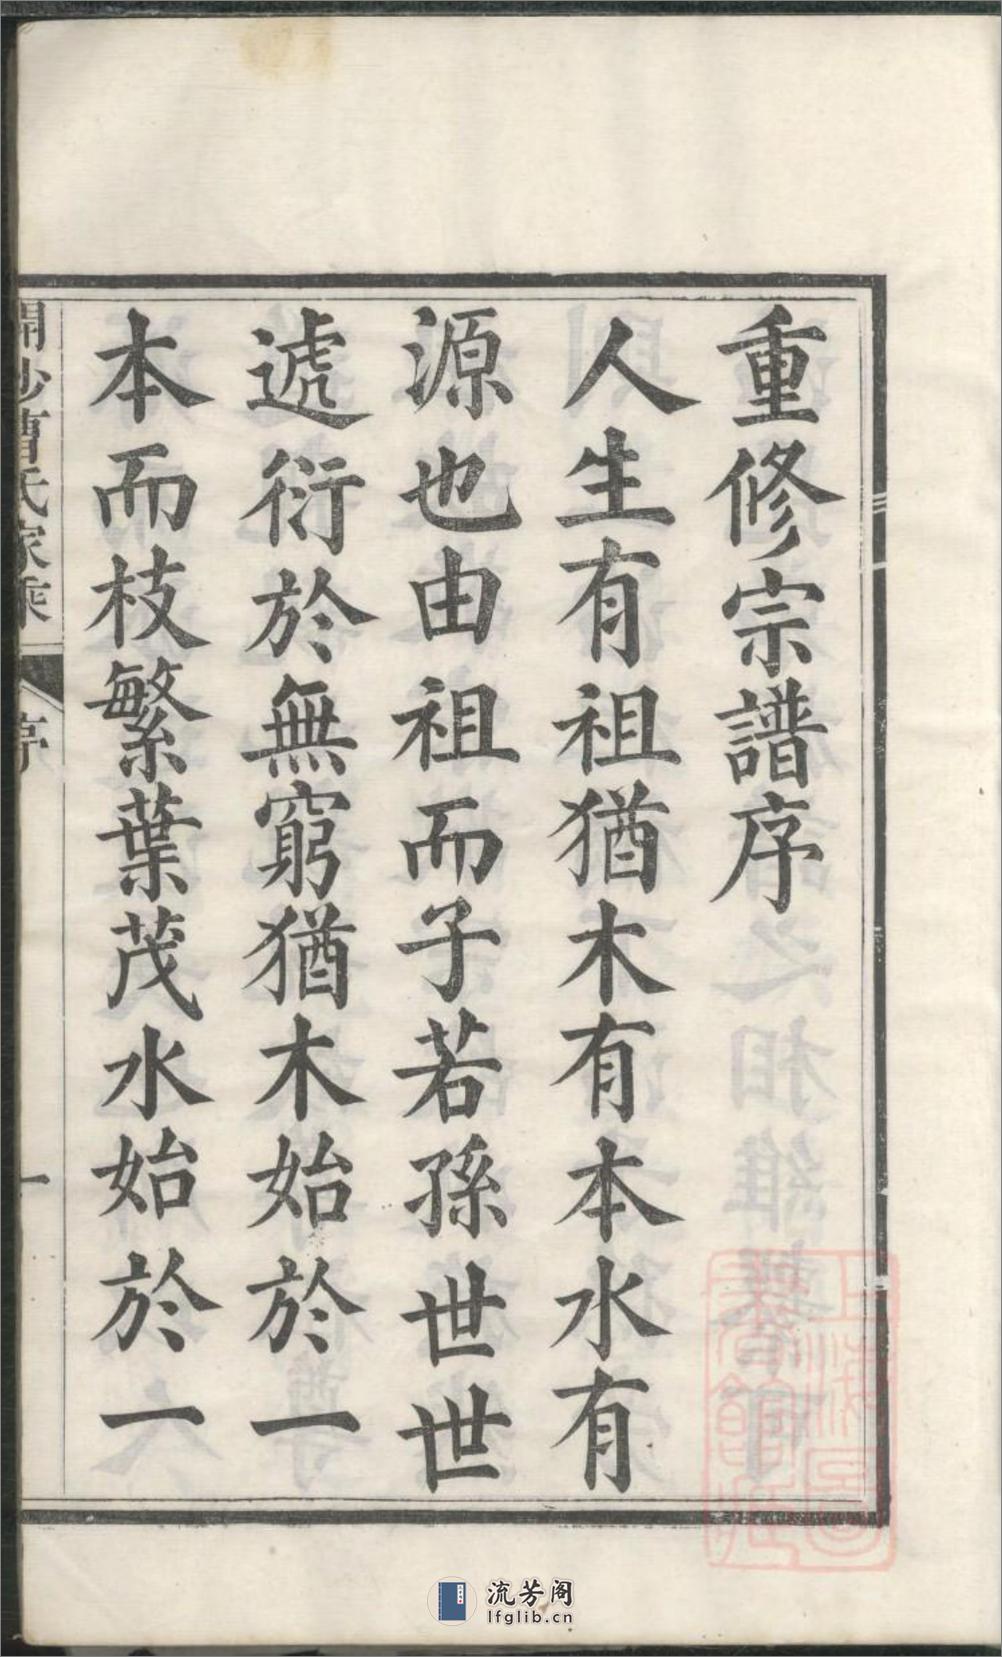 重修宗譜序
人生有祖猶木有本水有
源也由祖而子若孫世世
遞衍於無窮猶木始於一
本而枝繁葉茂水始於一
開沙曹氏家乘
序
一
流芳阁
lfglib.cn